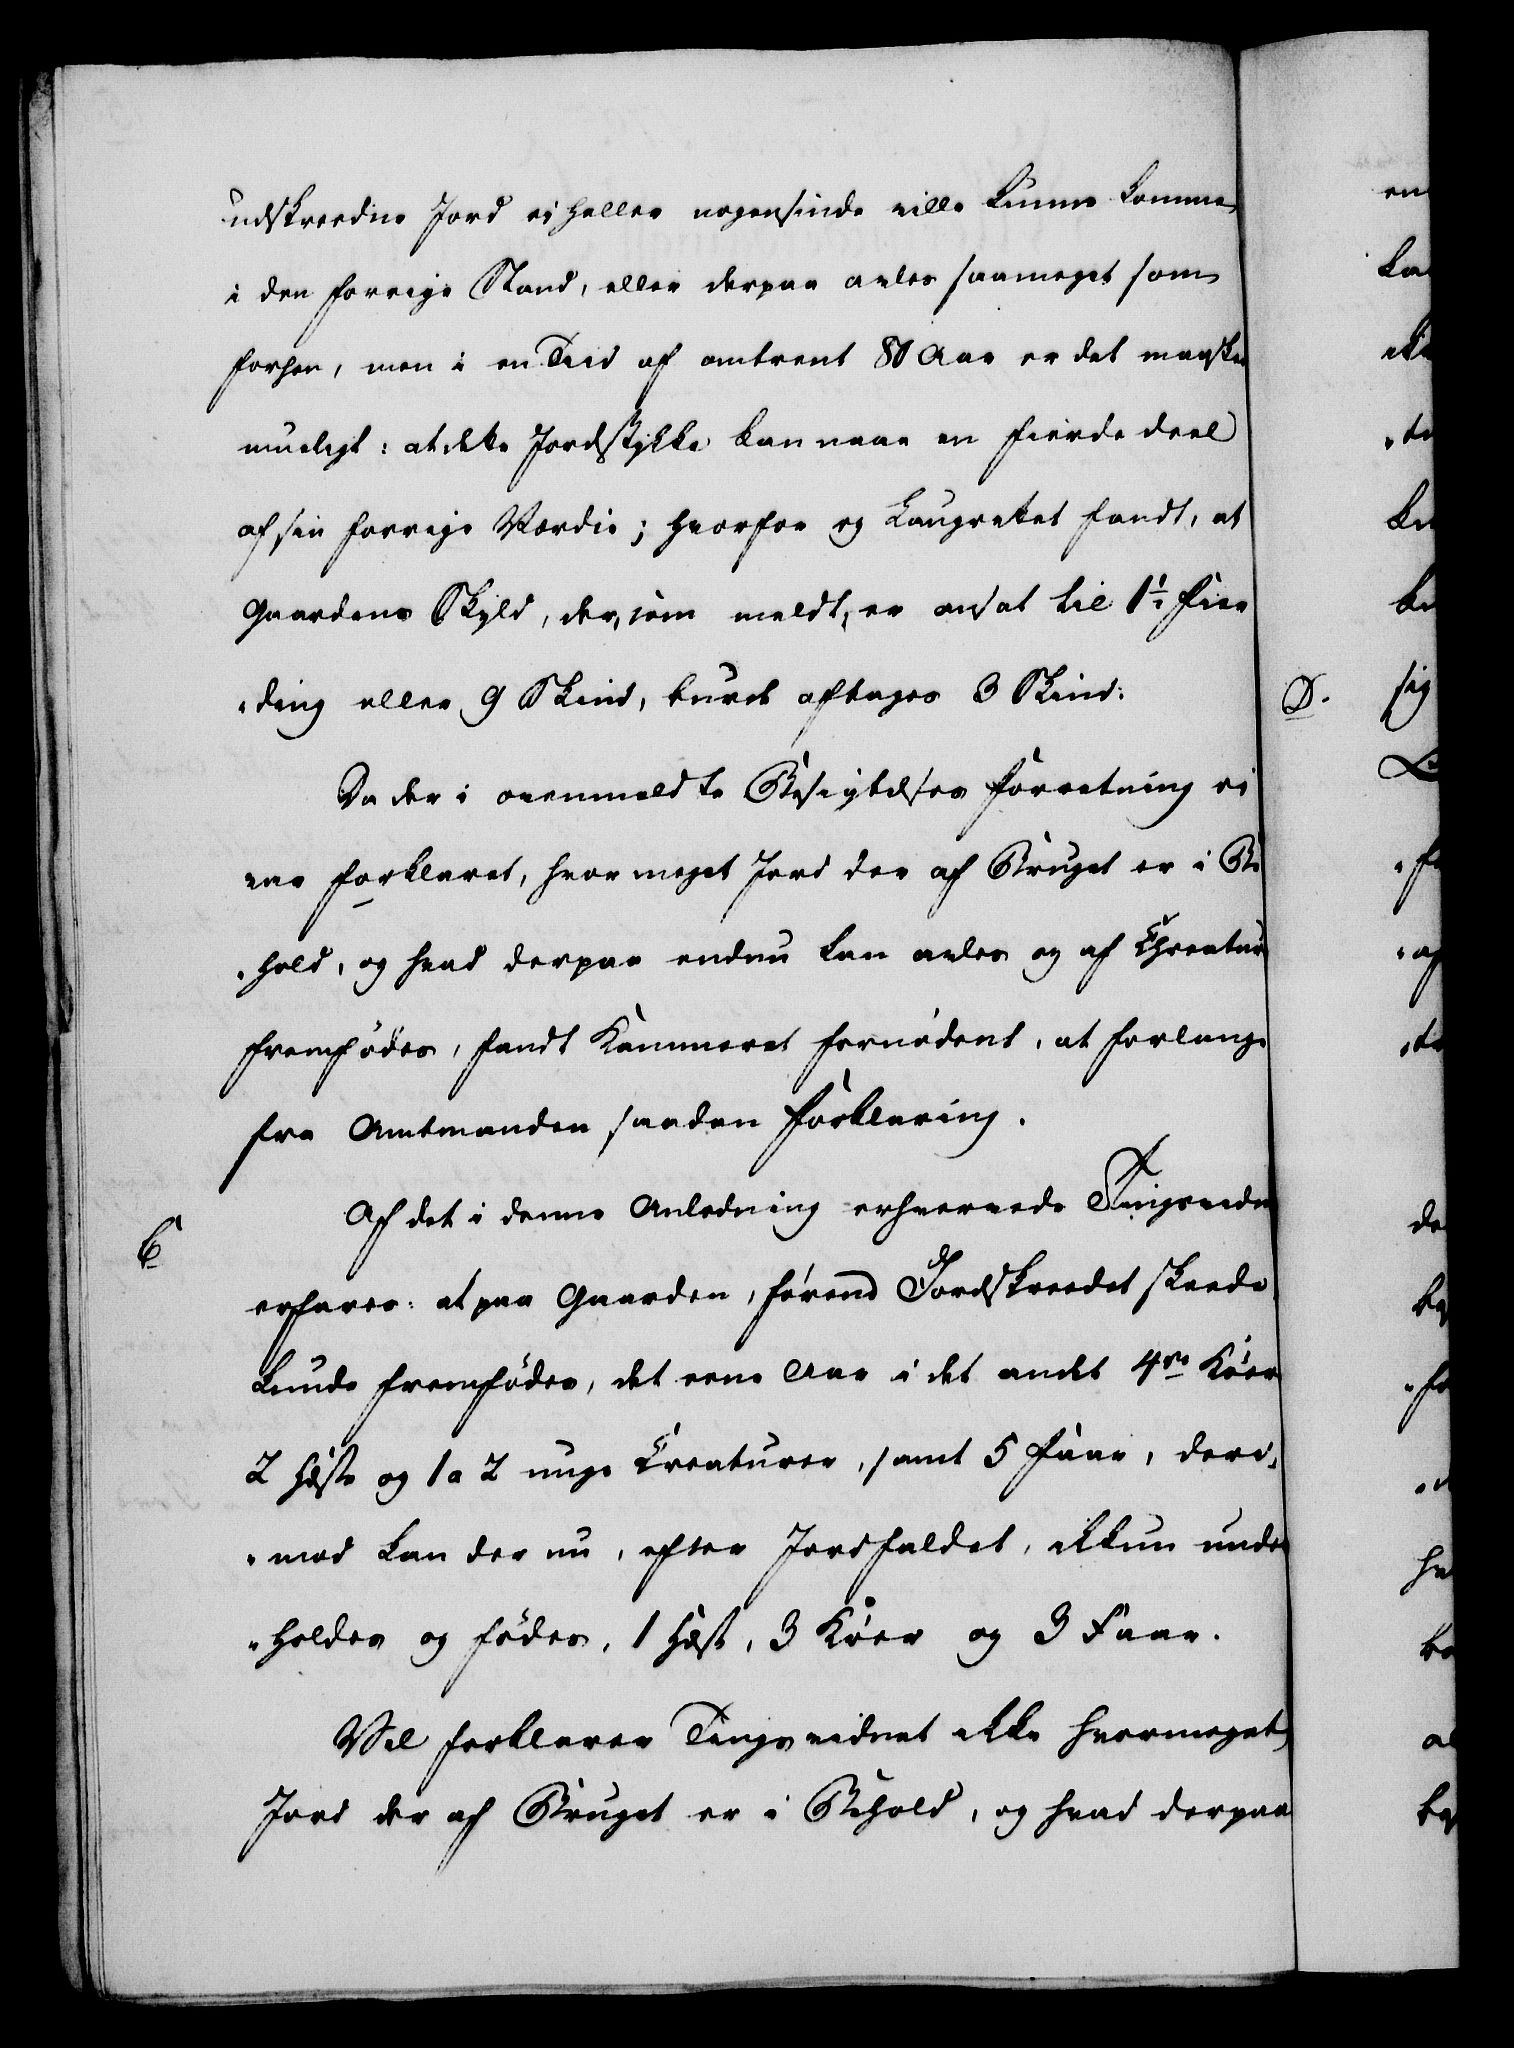 udskreedne Jord ei heller nogensinde ville kunne komme
i den forrige Stand, eller derpaa avles saameget som
forhen, men i en Tiid af omtrent 80 Aar er det maaskee
mueligt: at dette Jordstykke kan naae en fierde deel
af sin forrige Værdie; hvorfor og Laugrettet fandt, at
Gaardens Skyld, der, som meldt, er ansat til 1½ Fier
„ding eller 9 Skind, burde aftages 3 Skind:
Da der i ovenmeldte Besigtelses Forretning ei
var forklaret, hvormeget Jord der af Bruget er i Be
„hold, og hvad derpaa endnu kan avles og af Creatur
fremfødes, fandt Kammeret fornødent, at forlange
fra Amtmanden saadan Forklaring.
C
Af det i denne Anledning erhvervede Tingsvidne
erfares: at paa Gaarden, førend Jordskreedet skeede
kunde fremfødes, det eene Aar i det andet 4re Køer
2 Heste og 1 a 2 unge Creaturer, samt 5 Faar, deri„
„mod kan der nu, efter Jordfaldet, ikkun under
„holdes og fødes, 1 Hest, 3 Køer og 3 Faar.
Vel forklarer Tingsvidnet ikke hvormeget
Jord der af Bruget er i Behold, og hvad derpaa
D.
sig